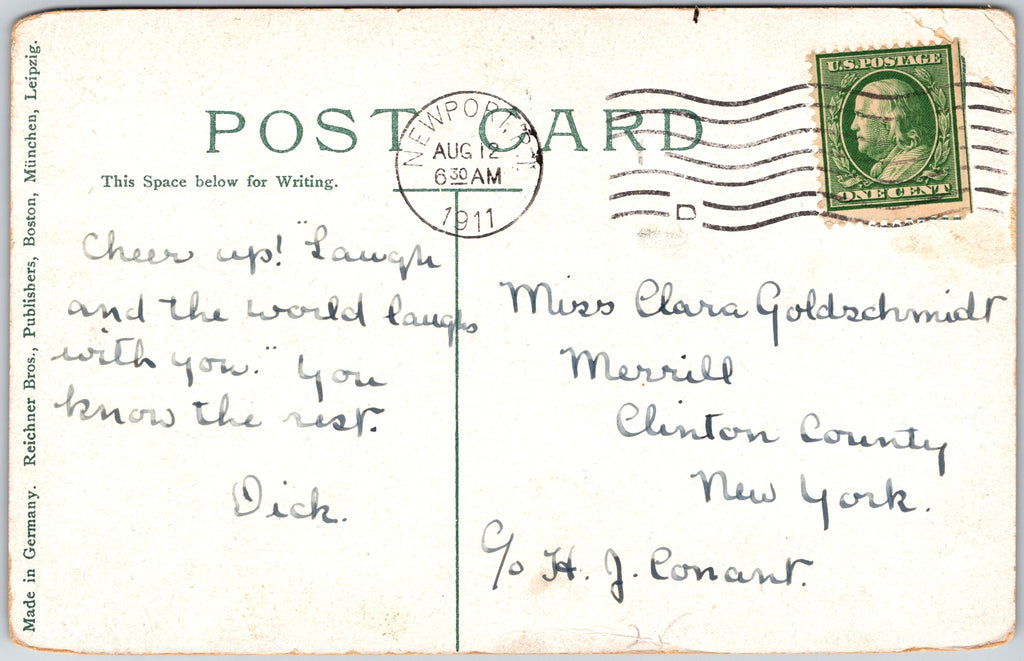 POST CARD
This Space below for Writing.
NEWPORT, R.I.
AUG 12
6 30 AM
1911
D
U.S. POSTAGE
ONE CENT
Cheer up! "Laugh
and the world laughs
with you." You
know the rest.
Dick.
Miss Clara Goldschmidt
Merrill
Clinton County
New York.
c/o H. J. Conant.
Made in Germany. Reichner Bros., Publishers, Boston, München, Leipzig.